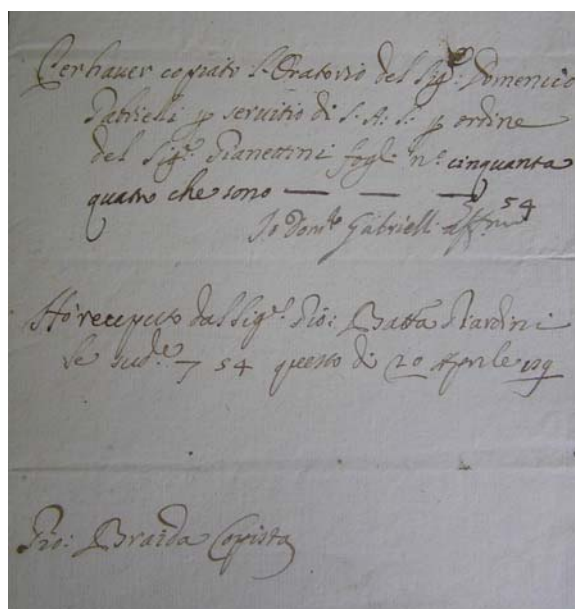 Per haver copiato l'Oratorio del Sig.r Domenico
Gabrielli p servitio di S. A. S. p ordine
del Sig.r Gianettini fogli n.o cinquanta
quatro che sono — — — 54
Io Dom.co Gabrielli affermo
Hò receputo dal Sig.r Gio: Batta Giardini
le sud.e 54 questo dì 20 Aprile
Gio: Braida Copista